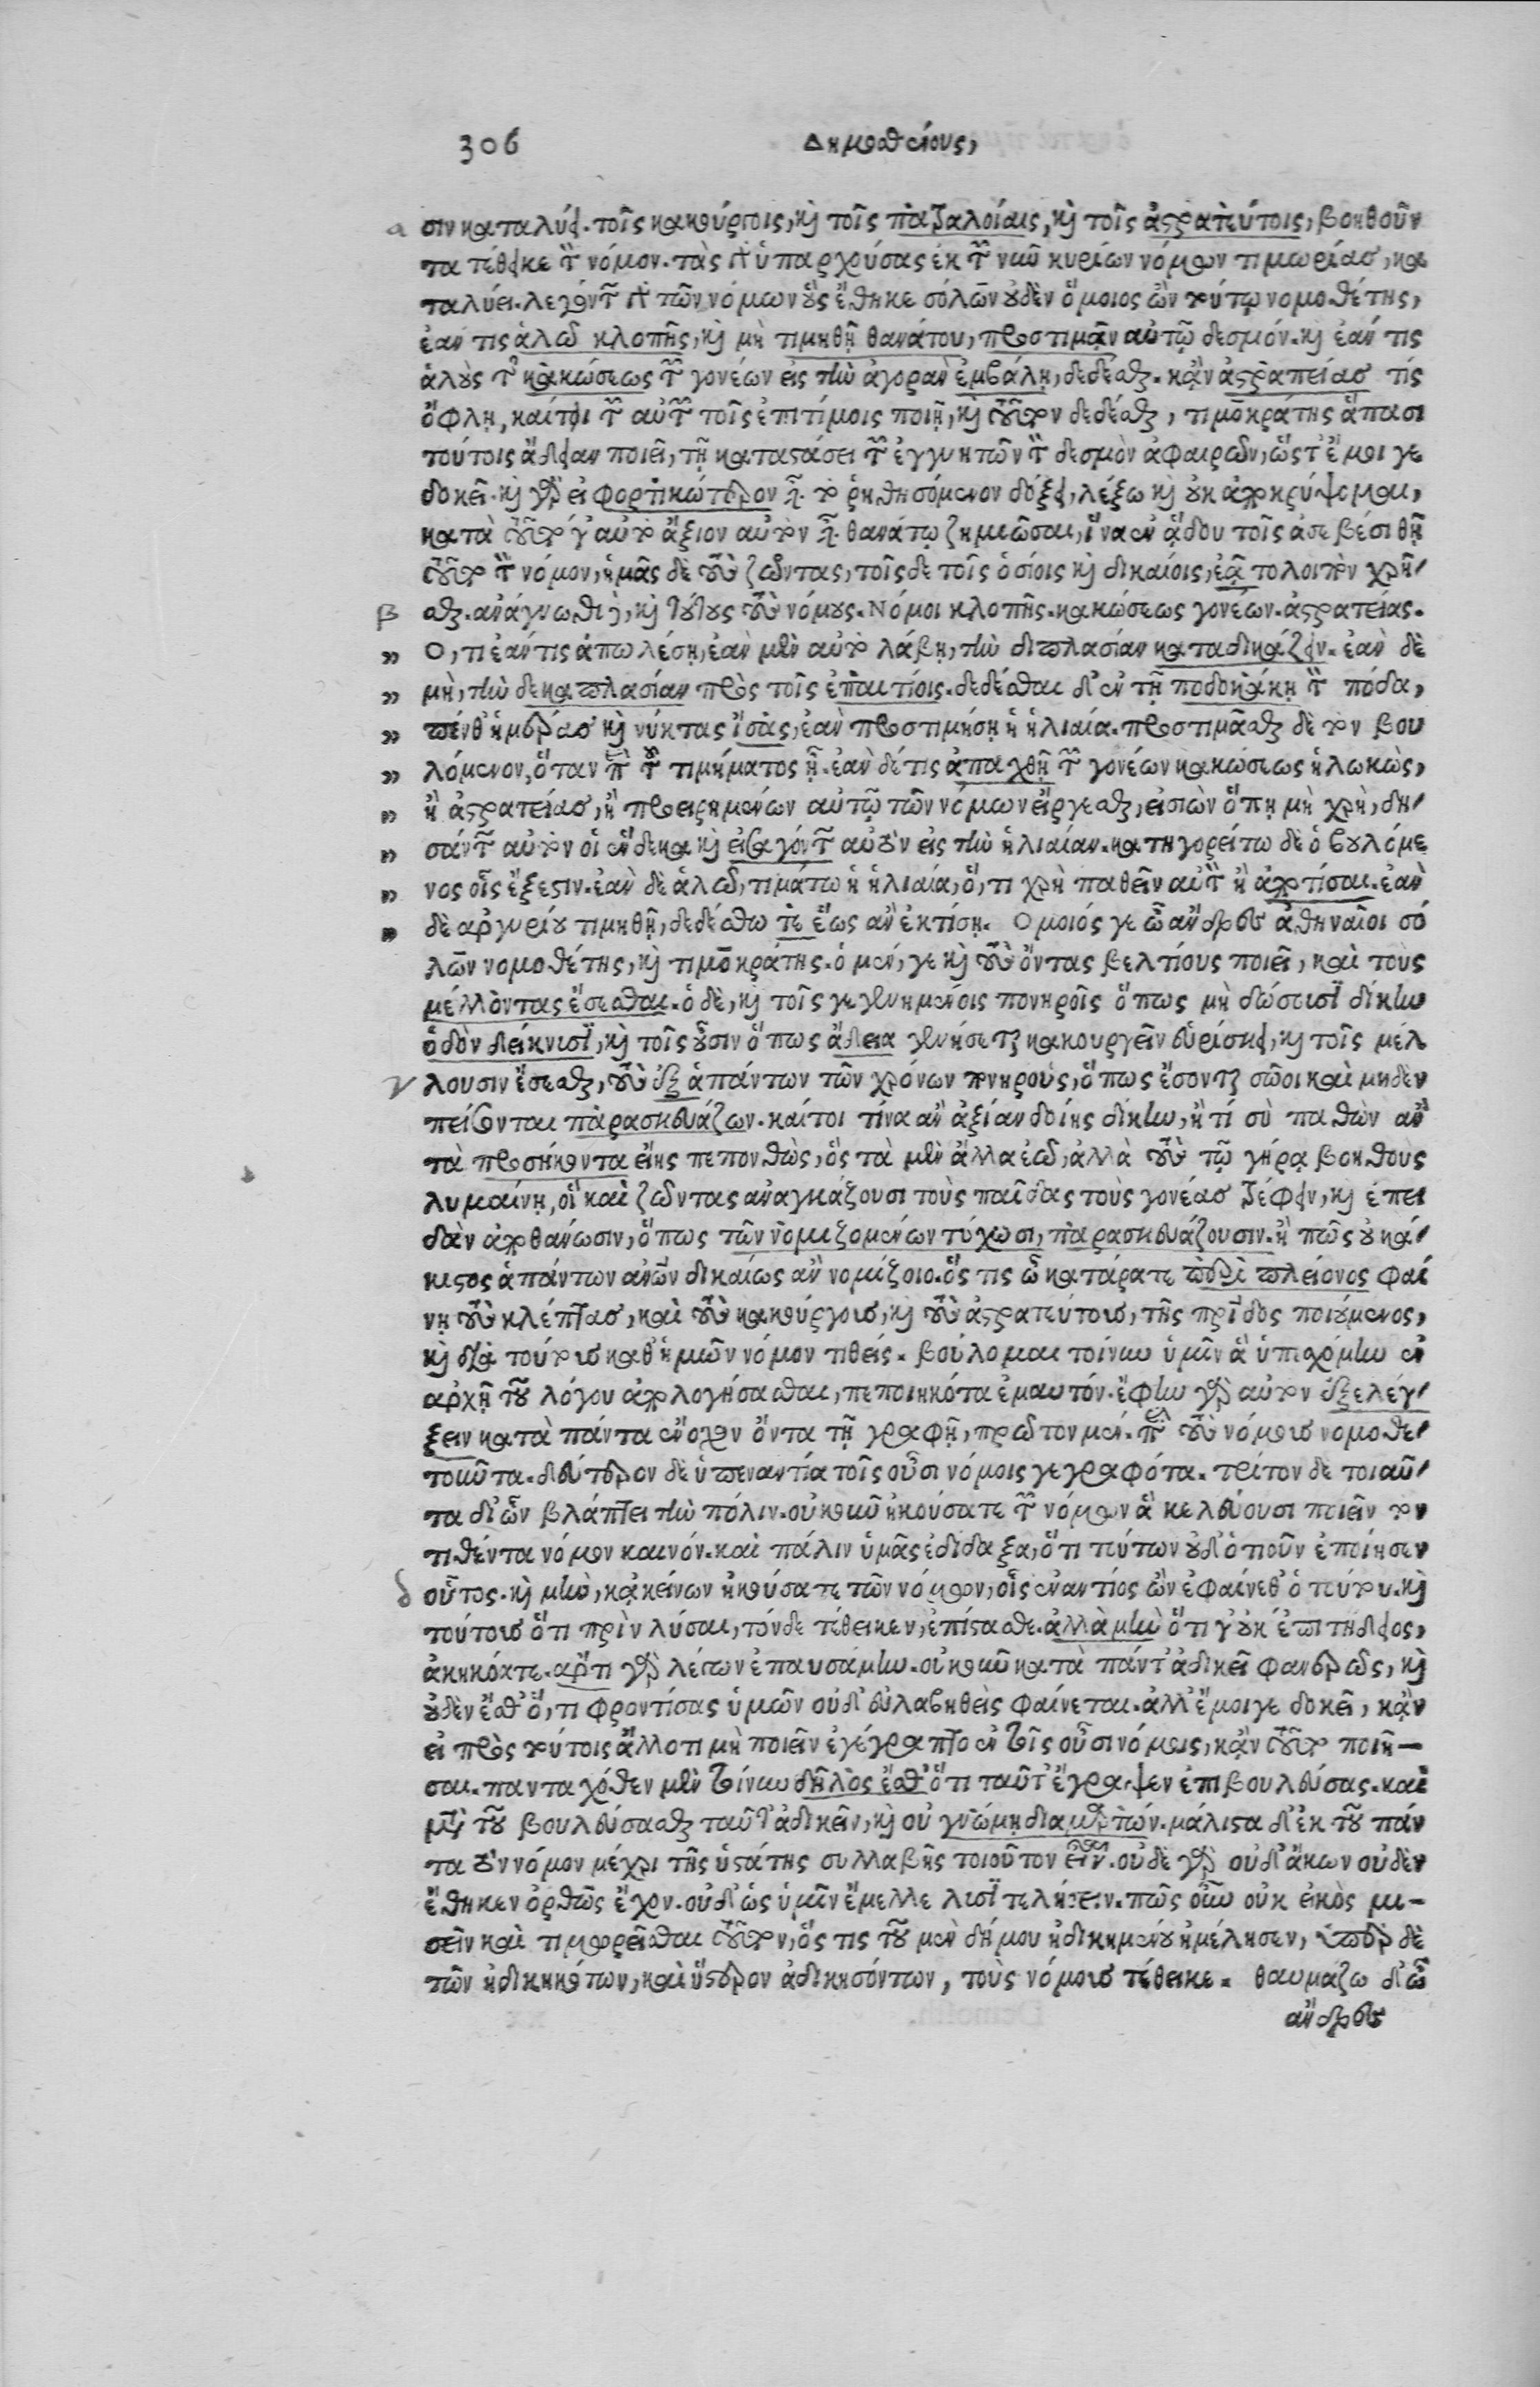 306 Δημοσθένους,
α σιν καταλύει. τοῖς κακούργοις, καὶ τοῖς πατραλοίαις, καὶ τοῖς ἀστρατεύτοις, βοηθοῦν
τα τέθεικε τὸν νόμον. τὰς δὲ ὑπαρχούσας ἐκ τῶν νῦν κυρίων νόμων τιμωρίας, κα
ταλύει. λεγόντων δὲ τῶν νόμων οὓς ἔθηκε σόλων οὐδὲν ὅμοιος ὢν τούτῳ νομοθέτης,
ἐάν τις ἁλῷ κλοπῆς, καὶ μὴ τιμηθῇ θανάτου, προστιμᾷν αὐτῷ δεσμόν. καὶ ἐάν τίς
ἁλοὺς τῆς κακώσεως τῶν γονέων εἰς τὴν ἀγορὰν ἐμβάλῃ, δεδέσθαι. κᾂν ἀστρατείας τίς
ὄφλῃ, καίτοι τῶν αὐτῶν τοῖς ἐπιτίμοις ποιῇ, καὶ τοῦτον δεδέσθαι, τιμοκράτης ἅπασι
τούτοις ἄδειαν ποιεῖ, τῇ καταστάσει τῶν ἐγγυητῶν τὸν δεσμὸν ἀφαιρῶν, ὥστ' ἔμοι γε
δοκεῖ. καὶ γὰρ εἰ φορτικώτερον εἶναι τὸ ῥηθησόμενον δόξει, λέξω καὶ οὐκ ἀποκρύψομαι,
κατὰ τοῦτό γ' αὐτὸ ἄξιον αὐτὸν εἶναι θανάτῳ ζημιῶσαι, ἵνα ἐν ᾅδου τοῖς ἀσεβέσι θῇ
τοῦτον τὸν νόμον, ἡμᾶς δὲ τοὺς ζῶντας, τοῖς δε τοῖς ὁσίοις καὶ δικαίοις, ἐᾷ τολοιπὸν χρῆ/
β σθαι. ἀνάγνωθι δὲ, καὶ τούτους τοὺς νόμους. Νόμοι κλοπῆς. κακώσεως γονέων. ἀστρατείας.
" Ο, τι ἐάν τις ἀπωλέσῃ, ἐὰν μὲν αὐτὸ λάβῃ, τὴν διπλασίαν καταδικάζειν. ἐὰν δὲ
" μὴ, τὴν δεκαπλασίαν πρὸς τοῖς ἐπαιτίοις. δεδέσθαι δ' ἐν τῇ ποδοκάκῃ τὸν πόδα,
" πένθ' ἡμέρας καὶ νύκτας ἴσας, ἐὰν προστιμήσῃ ἡ ἡλιαία. προστιμᾶσθαι δὲ τὸν βου
" λόμενον, ὅταν περὶ τοῦ τιμήματος ᾖ. ἐὰν δέ τις ἀπαχθῇ τῶν γονέων κακώσεως ἡλωκὼς,
" ἢ ἀστρατείας, ἢ προειρημένων αὐτῷ τῶν νόμων εἴργεσθαι, εἰσιὼν ὅπῃ μὴ χρὴ, δη/
" σάντων αὐτὸν οἱ ἕνδεκα καὶ εἰσαγόντων αὐτὸν εἰς τὴν ἡλιαίαν. κατηγορείτω δὲ ὁ βουλόμε
" νος οἷς ἔξεστιν. ἐὰν δὲ ἁλῷ, τιμάτω ἡ ἡλιαία, ὅ, τι χρὴ παθεῖν αὐτὸν ἢ ἀποτίσαι. ἐὰν
" δὲ ἀργυρίου τιμηθῇ, δεδέσθω τὲ ἕως ἂν ἐκτίσῃ. Ομοιός γε ὦ ἄνδρες ἀθηναῖοι σό
λων νομοθέτης, καὶ τιμοκράτης. ὁ μέν, γε καὶ τοὺς ὄντας βελτίους ποιεῖ, καὶ τοὺς
μέλλοντας ἔσεσθαι. ὁ δὲ, καὶ τοῖς γεγενημένοις πονηροῖς ὅπως μὴ δώσουσι δίκην
ὁδὸν δείκνυσι, καὶ τοῖς οὖσιν ὅπως ἄδεια γενήσεται κακουργεῖν εὑρίσκει, καὶ τοῖς μέλ
γ λουσιν ἔσεσθαι, τοὺς ἐξ ἁπάντων τῶν χρόνων πονηροὺς, ὅπως ἔσονται σῶοι καὶ μηδὲν
πείσονται παρασκευάζων. καίτοι τίνα ἂν ἀξίαν δοίης δίκην, ἢ τί σὺ παθὼν ἂν
τὰ προσήκοντα εἴης πεπονθὼς, ὃς τὰ μὲν ἄλλα ἐῶ, ἀλλὰ τοὺς τῷ γήρᾳ βοηθοὺς
λυμαίνῃ, οἳ καὶ ζῶντας ἀναγκάζουσι τοὺς παῖδας τοὺς γονέας τρέφειν, καὶ ἐπει
δὰν ἀποθάνωσιν, ὅπως τῶν νομιζομένων τύχωσι, παρασκευάζουσιν. ἢ πῶς οὐ κά/
κιστος ἁπάντων ἀνθρώπων δικαίως ἂν νομίζοιο. ὅς τις ὦ κατάρατε περὶ πλείονος φαί
νῃ τοὺς κλέπτας, καὶ τοὺς κακούργους, καὶ τοὺς ἀστρατεύτους, τῆς πατρίδος ποιούμενος,
καὶ διὰ τούτους καθ' ἡμῶν νόμον τιθείς. βούλομαι τοίνυν ὑμῖν ἃ ὑπεσχόμην ἐν
ἀρχῇ τοῦ λόγου ἀπολογήσασθαι, πεποιηκότα ἐμαυτόν. ἔφην γὰρ αὐτὸν ἐξελέγ/
ξειν κατὰ πάντα ἔνοχον ὄντα τῇ γραφῇ, πρῶτον μέν. παρὰ τοὺς νόμους νομοθε/
τοῦντα. δεύτερον δὲ ὑπεναντία τοῖς οὖσι νόμοις γεγραφότα. τρίτον δὲ τοιαῦ/
τα δι' ὧν βλάπτει τὴν πόλιν. οὐκοῦν ἠκούσατε τῶν νόμων ἃ κελεύουσι ποιεῖν τὸν
τιθέντα νόμον καινόν. καὶ πάλιν ὑμᾶς ἐδίδαξα, ὅτι τούτων οὐδ' ὁτιοῦν ἐποίησεν
δ οὗτος. καὶ μὴν, κᾀκείνων ἠκούσατε τῶν νόμων, οἷς ἐναντίος ὢν ἐφαίνεθ' ὁ τούτου. καὶ
τούτους ὅτι πρὶν λύσαι, τόνδε τέθεικεν, ἐπίστασθε. ἀλλὰ μὴν ὅτι γ' οὐκ ἐπιτήδειος,
ἀκηκόατε. ἄρτι γὰρ λέγων ἐπαυσάμην. οὐκοῦν κατὰ πάντ' ἀδικεῖ φανερῶς, καὶ
οὐδὲν ἔσθ' ὅ, τι φροντίσας ὑμῶν οὐδ' εὐλαβηθεὶς φαίνεται. ἀλλ' ἔμοιγε δοκεῖ, κᾂν
εἰ πρὸς τούτοις ἄλλο τι μὴ ποιεῖν ἐγέγραπτο ἐν τοῖς οὖσι νόμοις, κᾂν τοῦτο ποιῆ-
σαι. πανταχόθεν μὲν τοίνυν δῆλός ἐσθ' ὅτι ταῦτ' ἔγραψεν ἐπιβουλεύσας. καὶ
μετὰ τοῦ βουλεύσασθαι ταῦτ' ἀδικεῖν, καὶ οὐ γνώμῃ διαμαρτών. μάλιστα δ' ἐκ τοῦ πάν
τα τὸν νόμον μέχρι τῆς ὑστάτης συλλαβῆς τοιοῦτον εἶναι. οὐδὲ γὰρ οὐδ' ἄκων οὐδὲν
ἔθηκεν ὀρθῶς ἔχον. οὐδ' ὡς ὑμῖν ἔμελλε λυσιτελήσειν. πῶς οὖν οὐκ εἰκὸς μι-
σεῖν καὶ τιμωρεῖσθαι τοῦτον, ὅς τις τοῦ μὲν δήμου ἠδικημένου ἠμέλησεν, ὑπὲρ δὲ
τῶν ἠδικηκότων, καὶ ὕστερον ἀδικησόντων, τοὺς νόμους τέθεικε. θαυμάζω δ' ὦ
ἄνδρες